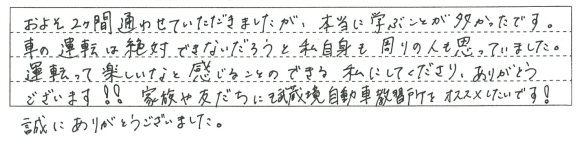 およそ2ヶ間通わせていただきましたが、本当に学ぶことが多かったです。
車の運転は絶対できないだろうと私自身も周りの人も思っていました。
運転って楽しいなと感じることのできる私にしてくださり、ありがとう
ございます!! 家族や友だちに武蔵境自動車教習所をオススメしたいです!
誠にありがとうございました。